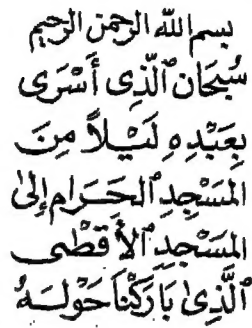 بسم الله الرحمن الرحيم
سُبْحَانَ ٱلَّذِى أَسْرَى
بِعَبْدِهِ لَيْلاً مِنَ
المَسْجِدِ ٱلحَرَامِ إِلىٰ
المَسْجِدِ ٱلأَقْصَى
ٱلَّذِىٰ بَارَكْنَا حَوْلَهُ